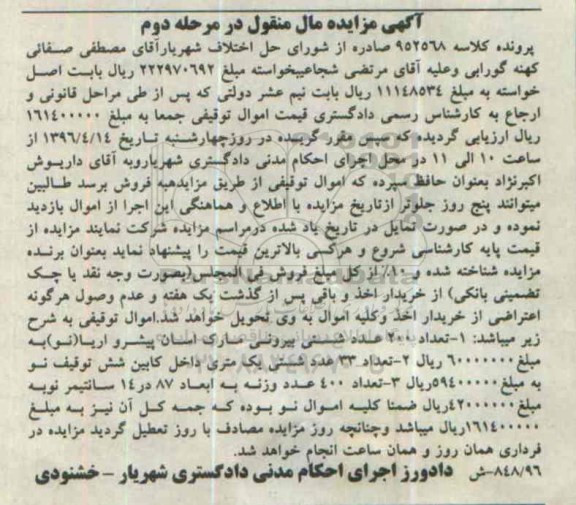 آگهی مزایده مال منقول در مرحله دوم
پرونده کلاسه ۹۵۲۵۶۸ صادره از شورای حل اختلاف شهریارآقای مصطفی صفائی
کهنه گورابی وعلیه آقای مرتضی شجاعیبخواسته مبلغ ۲۲۲۹۷۰۶۹۲ ریال بابت اصل
خواسته به مبلغ ۱۱۱۴۸۵۳۴ ریال بابت نیم عشر دولتی که پس از طی مراحل قانونی و
ارجاع به کارشناس رسمی دادگستری قیمت اموال توقیفی جمعا به مبلغ ۱۶۱۴۰۰۰۰۰
ریال ارزیابی گردیده که سپس مقرر گردیده در روزچهارشنبه تاریخ ۱۳۹۶/۴/۱۴ از
ساعت ۱۰ الی ۱۱ در محل اجرای احکام مدنی دادگستری شهریاروبه آقای داریوش
اکبرنژاد بعنوان حافظ سپرده که اموال توقیفی از طریق مزایدهبه فروش برسد طالبین
میتوانند پنج روز جلوتر ازتاریخ مزایده با اطلاع و هماهنگی این اجرا از اموال بازدید
نموده و در صورت تمایل در تاریخ یاد شده درمراسم مزایده شرکت نمایند مزایده از
قیمت پایه کارشناسی شروع و هرکسی بالاترین قیمت را پیشنهاد نماید بعنوان برنده
مزایده شناخته شده و ۱۰٪ از کل مبلغ فروش فی المجلس(بصورت وجه نقد یا چک
تضمینی بانکی) از خریدار اخذ و باقی پس از گذشت یک هفته و عدم وصول هرگونه
اعتراضی از خریدار اخذ وکلیه اموال به وی تحویل خواهد شد.اموال توقیفی به شرح
زیر میباشد: ۱-تعداد ۲۰۰ عدد شستی بیرونی مارک آسان پیشرو آریا(نو)به
مبلغ ۶۰۰۰۰۰۰۰ ریال ۲-تعداد ۳۳ عدد شستی یک متری داخل کابین شش توقیف نو
به مبلغ ۵۹۴۰۰۰۰۰ریال ۳-تعداد ۴۰۰ عدد وزنه به ابعاد ۸۷ در۱۴ سانتیمر نوبه
مبلغ۴۲۰۰۰۰۰۰ریال ضمنا کلیه اموال نو بوده که جمه کل آن نیز به مبلغ
۱۶۱۴۰۰۰۰۰ریال میباشد وچنانچه روز مزایده مصادف با روز تعطیل گردید مزایده در
فردای همان روز و همان ساعت انجام خواهد شد.
۸۴۸/۹۶-ش دادورز اجرای احکام مدنی دادگستری شهریار - خشنودی